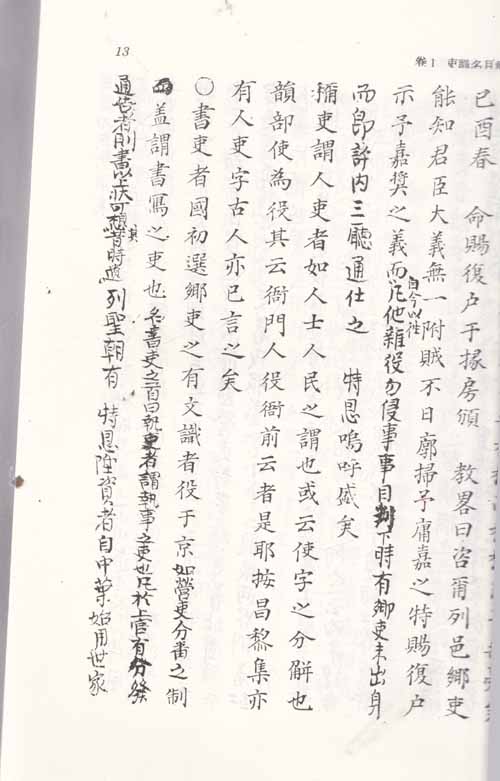 13
卷1 吏譜名目
己酉春 命賜復戶于掾房頒 教畧曰咨爾列邑鄉吏
能知君臣大義無一附賊不日廓掃予庸嘉之特賜復戶
示予嘉奬之義而自今以往凡他雜役勿侵事事目判下時有鄉吏未出身
而卽許內三廳通仕之 特恩嗚呼盛矣
稱吏謂人吏者如人士人民之謂也或云使字之分解也
韻部使為役其云衙門人役衙前云者是耶按昌黎集亦
有人吏字古人亦已言之矣
○書吏者國初選鄉吏之有文識者役于京如營吏分番之制
盖謂書寫之吏也名書吏之首曰執吏者謂執事之吏也凡於上官有分發
通告者則書以上狀可想其昔時遺 列聖朝有 特恩陞資者自中葉始用世家